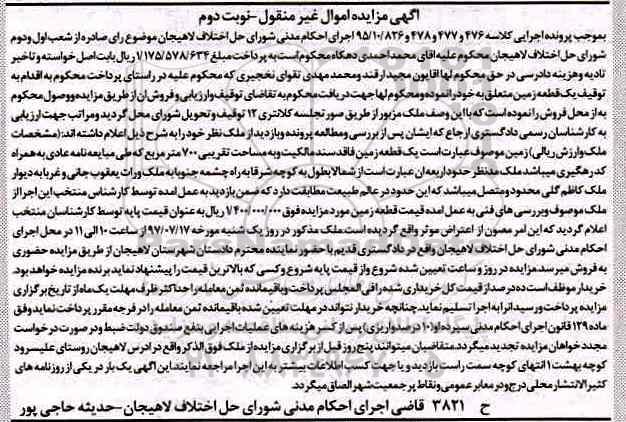 آگهی مزایده اموال غیر منقول -نوبت دوم
بموجب پرونده اجرایی کلاسه ۴۷۶ و ۴۷۷ و ۴۷۸ و ۹۵/۱۰/۸۳۶ اجرای احکام مدنی شورای حل اختلاف لاهیجان موضوع رای صادره از شعب اول ودوم
شورای حل اختلاف لاهیجان محکوم علیه اقای محمد احمدی دهکاه محکوم است به پرداخت مبلغ ۱/۱۷۵/۵۷۸/۶۳۴ ریال بابت اصل خواسته و تاخیر
تادیه و هزینه دادرسی در حق محکوم لها افایون مجید ارفند ومحمد مهدی تقوای نخجیری که محکوم علیه در راستای پرداخت محکوم به اقدام به
توقیف یک قطعه زمین متعلق به خود را نموده و محکوم لها جهت دریافت محکوم به تقاضای توقیف و ارزیابی و فروش آن از طریق مزایده و وصول محکوم
به از محل فروش را نموده است که با این وصف ملک مزبور از طریق صور تجلسه کلانتری ۱۲ توقیف و تحویل شورای محل گردید و مراتب جهت ارزیابی
به کارشناسان رسمی دادگستری ارجاع که ایشان پس از بررسی و مطالعه پرونده و بازدید از ملک نظر خود را به شرح ذیل اعلام داشته اند:(مشخصات
ملک وارزش ریالی) زمین موصوف عبارت است یک قطعه زمین فاقد سند مالکیت و به مساحت تقریبی ۷۰۰ متر مربع که طی مبایعه نامه عادی به همراه
کد رهگیری میباشد ملک مد نظر حدود اربعه ان عبارت است از شمالا بطول به کوچه شرقا به راه چشمه جنوبا به ملک وراث یعقوب جانی و غربا به دیوار
ملک کاظم گلی محدود و متصل میباشد که این حدود در عالم طبیعت مطابقت دارد که ضمن بازدید به عمل امده توسط کارشناس منتخب این اجرا از
ملک موصوف وبررسی های فنی به عمل امده قیمت قطعه زمین مورد مزایده فوق ۱/۴۰۰/۰۰۰/۰۰۰ ریال به عنوان قیمت پایه توسط کارشناسان منتخب
اعلام گردید که این امر مصون از اعتراض موثر واقع گردیده است.ملک مذکور در روز یک شنبه مورخه ۹۷/۰۷/۱۷ از ساعت ۱۰ الی ۱۱ در محل اجرای
احکام مدنی شورای حل اختلاف لاهیجان واقع در دادگستری قدیم با حضور نماینده محترم دادستان شهرستان لاهیجان از طریق مزایده حضوری
به فروش میرسد.مزایده در روز و ساعت تعیین شده شروع و از قیمت پایه شروع و کسی که بالاترین قیمت را پیشنهاد نماید برنده مزایده خواهد بود.
خریدار موظف است ده در صد از قیمت کل خریداری شده را فی المجلس پرداخت و باقیمانده ثمن معامله را حداکثر ظرف مهلت یک ماه از تاریخ برگزاری
مزایده پرداخت و رسید انرا به اجرا تسلیم نماید.چنانچه خریدار نتواند در مهلت تعیین شده باقیمانده ثمن معامله را در فرجه مقرر پرداخت نماید وفق
ماده ۱۲۹ قانون اجرای احکام مدنی سپرده او(۱۰ در صد واریزی) پس از کسر هزینه های عملیات اجرایی بنفع صندوق دولت ضبط و در صورت درخواست
مجدد خواهان مزایده تجدید میگردد.متقاضیان میتوانند پنج روز قبل از برگزاری مزایده از ملک فوق الذکر واقع در ادرس لاهیجان روستای علیسرود
کوچه بهشت ۱ انتهای کوچه سمت راست بازدید و یا جهت کسب اطلاعات بیشتر به این اجرا مراجعه نمایند.این آگهی یک بار در یکی از روزنامه های
کثیر الانتشار محلی درج و در معابر عمومی و نقاط پر جمعیت شهر الصاق میگردد.
ح ۳۸۲۱ قاضی اجرای احکام مدنی شورای حل اختلاف لاهیجان -حدیثه حاجی پور